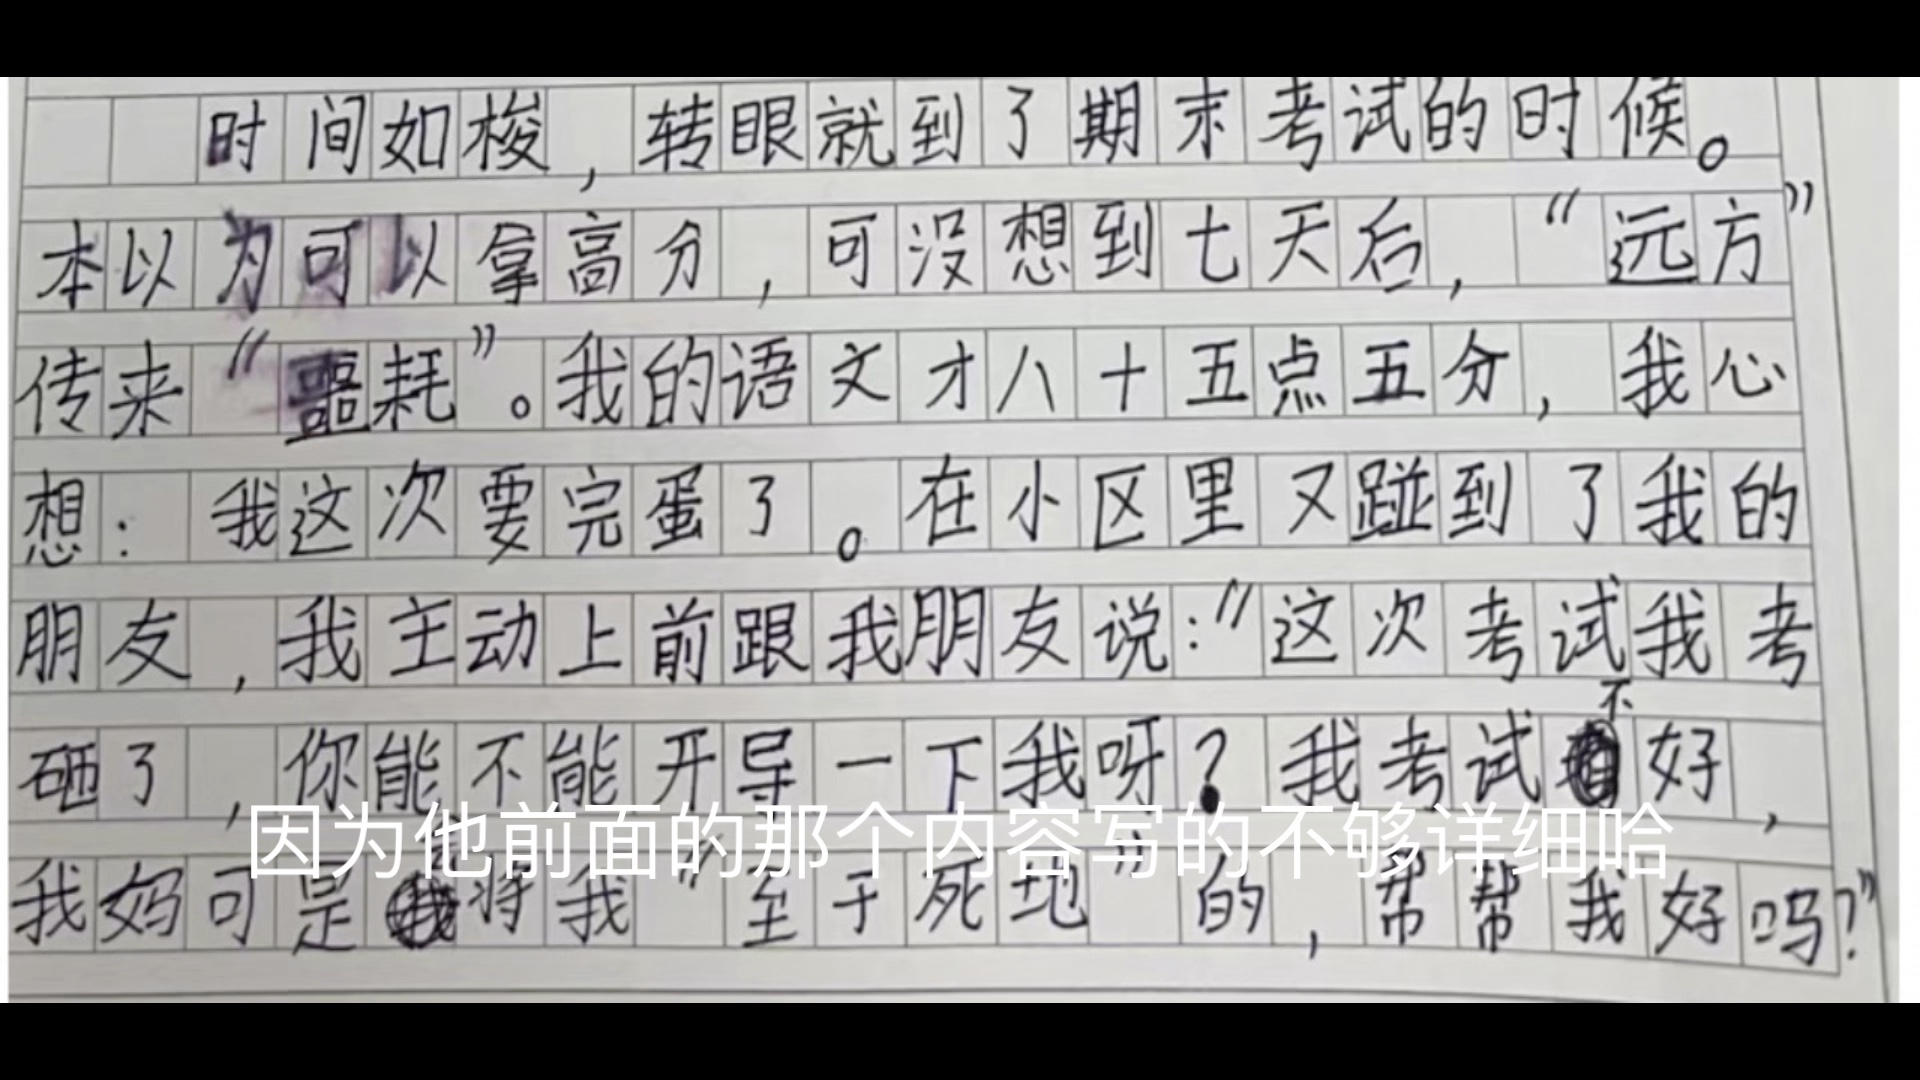 时间如梭，转眼就到了期末考试的时候。
本以为可以拿高分，可没想到七天后，“远方”
传来“噩耗”。我的语文才八十五点五分，我心
想：我这次要完蛋了。在小区里又碰到了我的
朋友，我主动上前跟我朋友说：“这次考试我考
砸了，你能不能开导一下我呀？我考试不好，
因为他前面的那个内容写的不够详细哈
我妈可是会将我“至于死地”的，帮帮我好吗？”